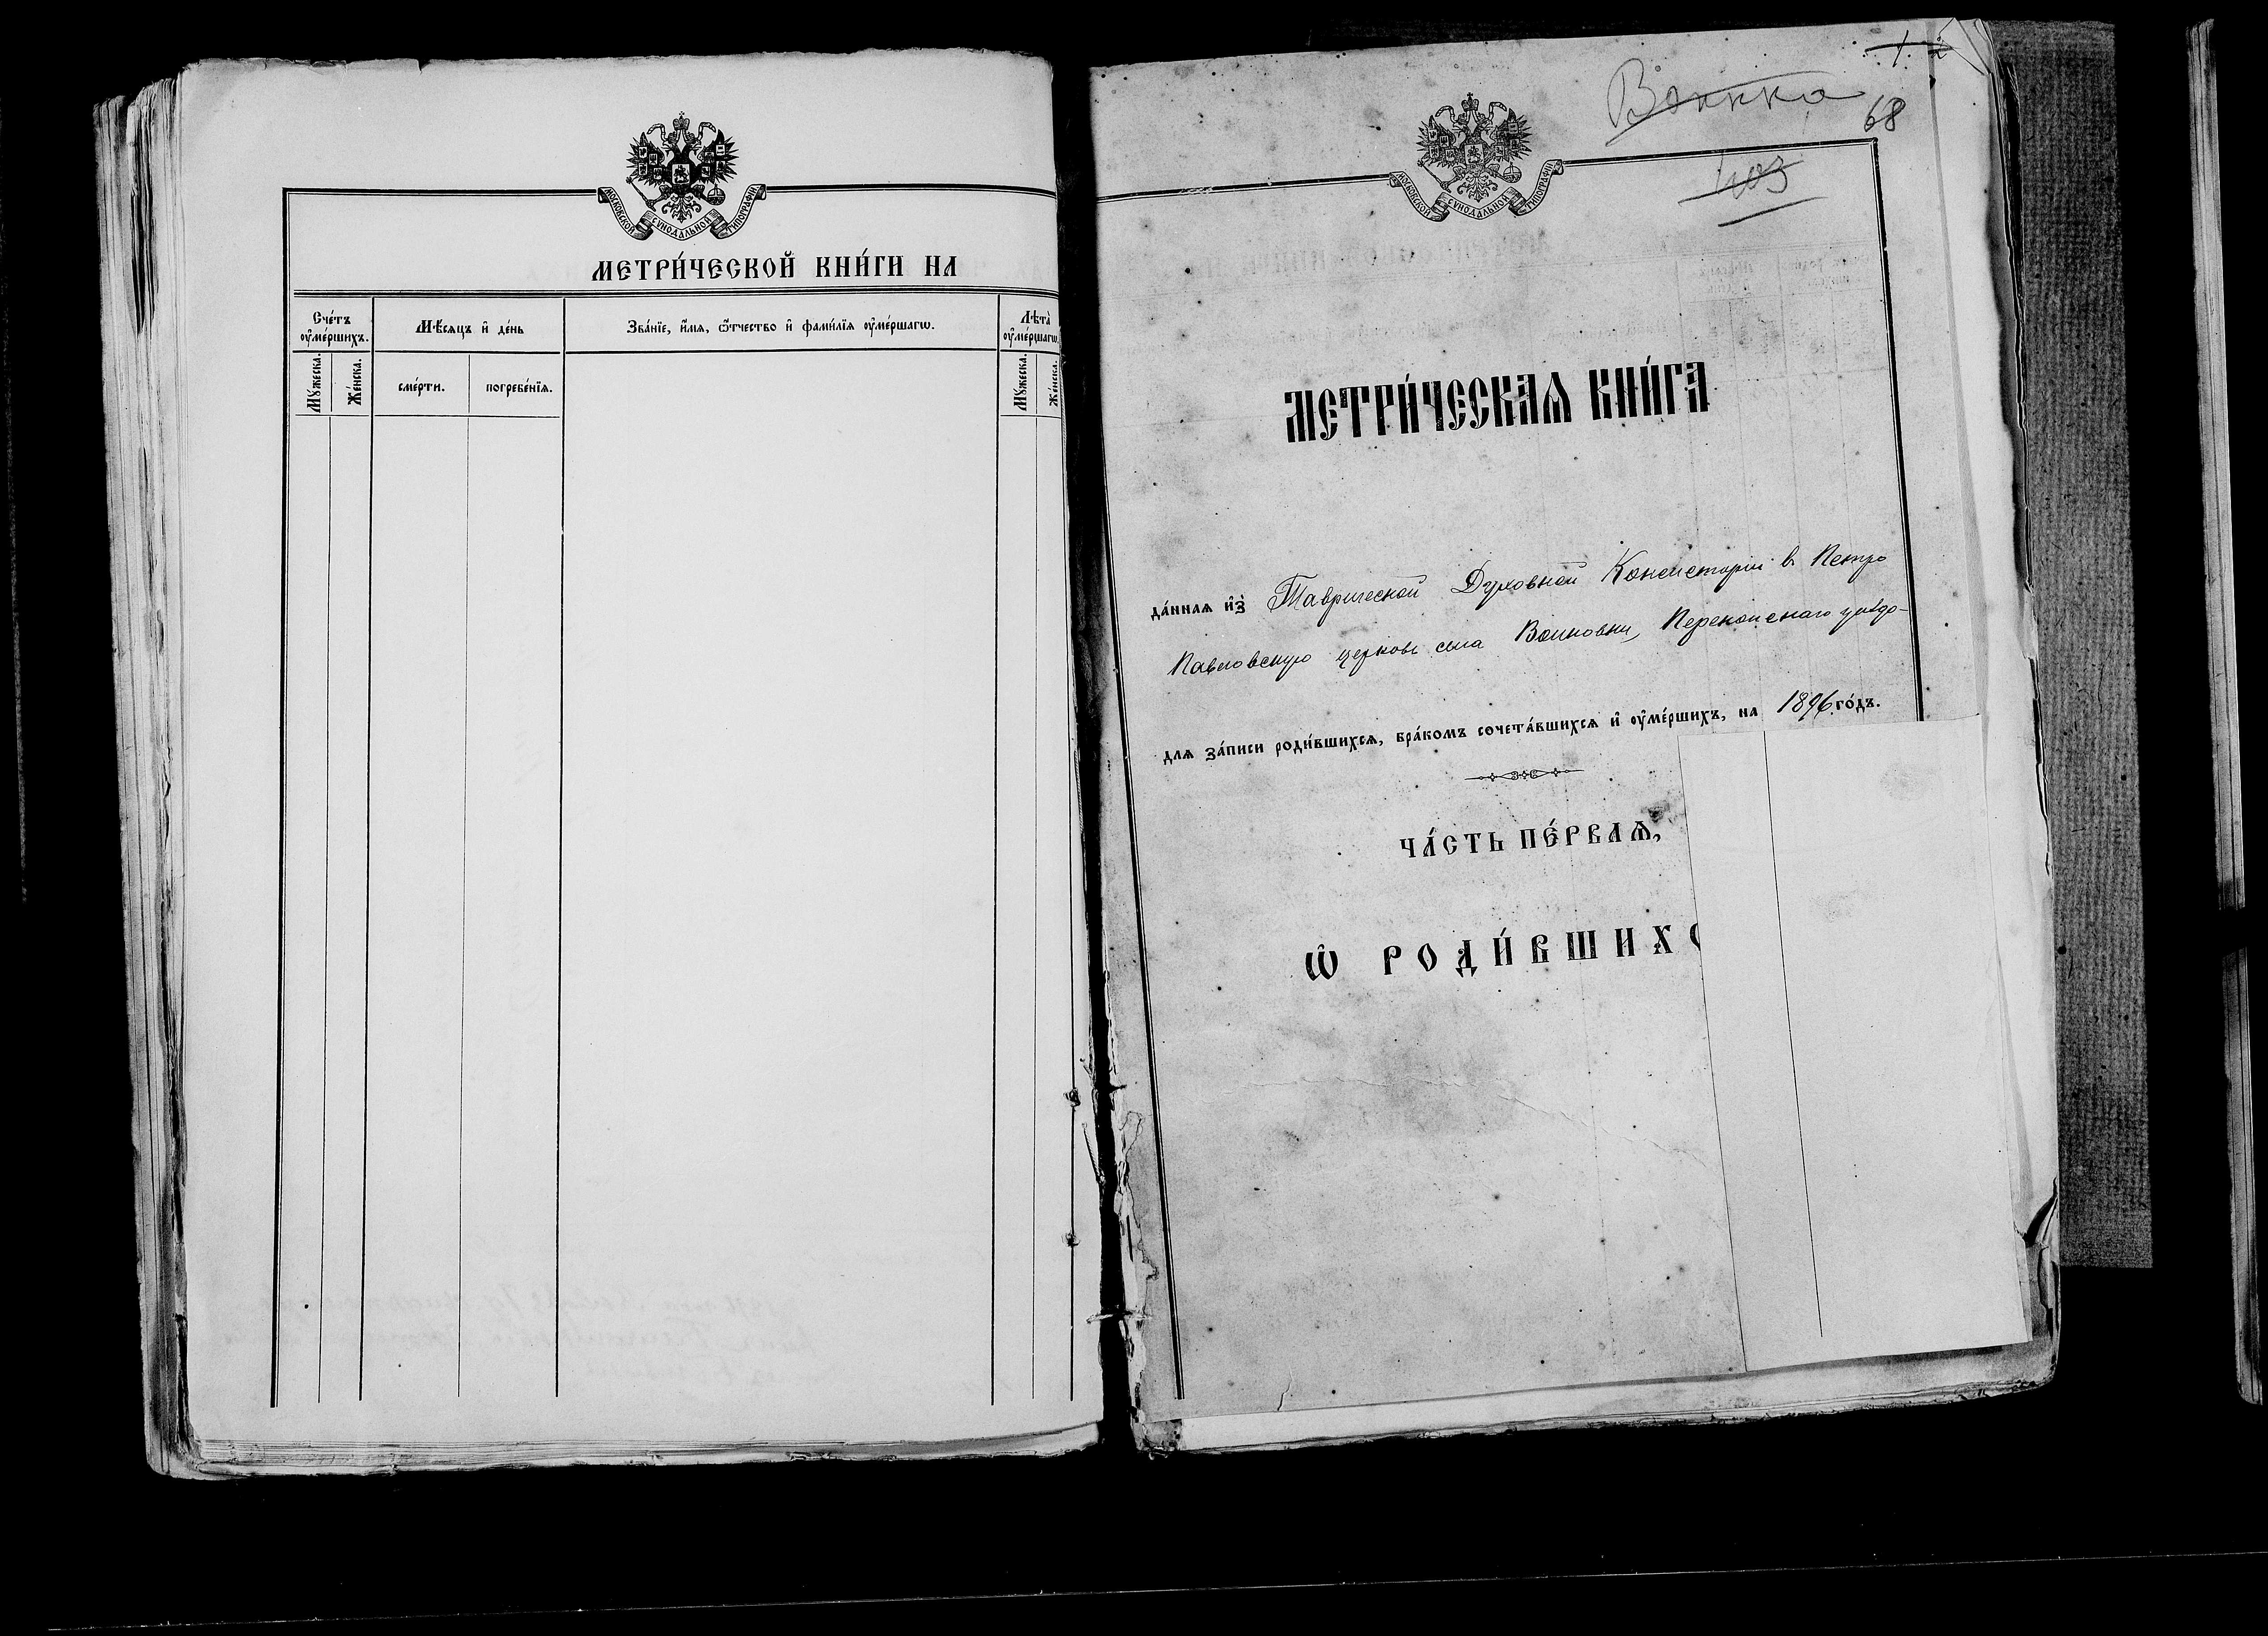 МОСКОВСКОЙ СѴНОДАЛЬНОЙ ТИПОГРАФІИ
МЕТРИ́ЧЕСКОЙ КНИ́ГИ НА
Сче́тъ ᲂу҆ме́ршихъ.
Мѣ́сяцъ и҆ де́нь
Зва́нїе, и҆́мѧ, ѻ҆́тчество и҆ фами́лїѧ ᲂу҆ме́ршагѡ.
Лѣта̀ ᲂу҆ме́ршагѡ.
Мꙋ́жеска.
Же́нска.
сме́рти.
погребе́нїѧ.
Мꙋ́жеска.
Же́нска.
68
403
МОСКОВСКОЙ СѴНОДАЛЬНОЙ ТИПОГРАФІИ
МЕТРИ́ЧЕСКАѦ КНИ́ГА
да́ннаѧ и҆з̾ Таврической Духовной Консисторіи в Петро
Павловскую церковь села Воиновки, Перекопскаго уѣзда
длѧ за́писи роди́вшихсѧ, бра́комъ сочета́вшихсѧ и҆ ᲂу҆ме́ршихъ, на 1896 го́дъ.
ЧА́СТЬ ПЕ́РВАѦ,
Ѽ РОДИ́ВШИХС